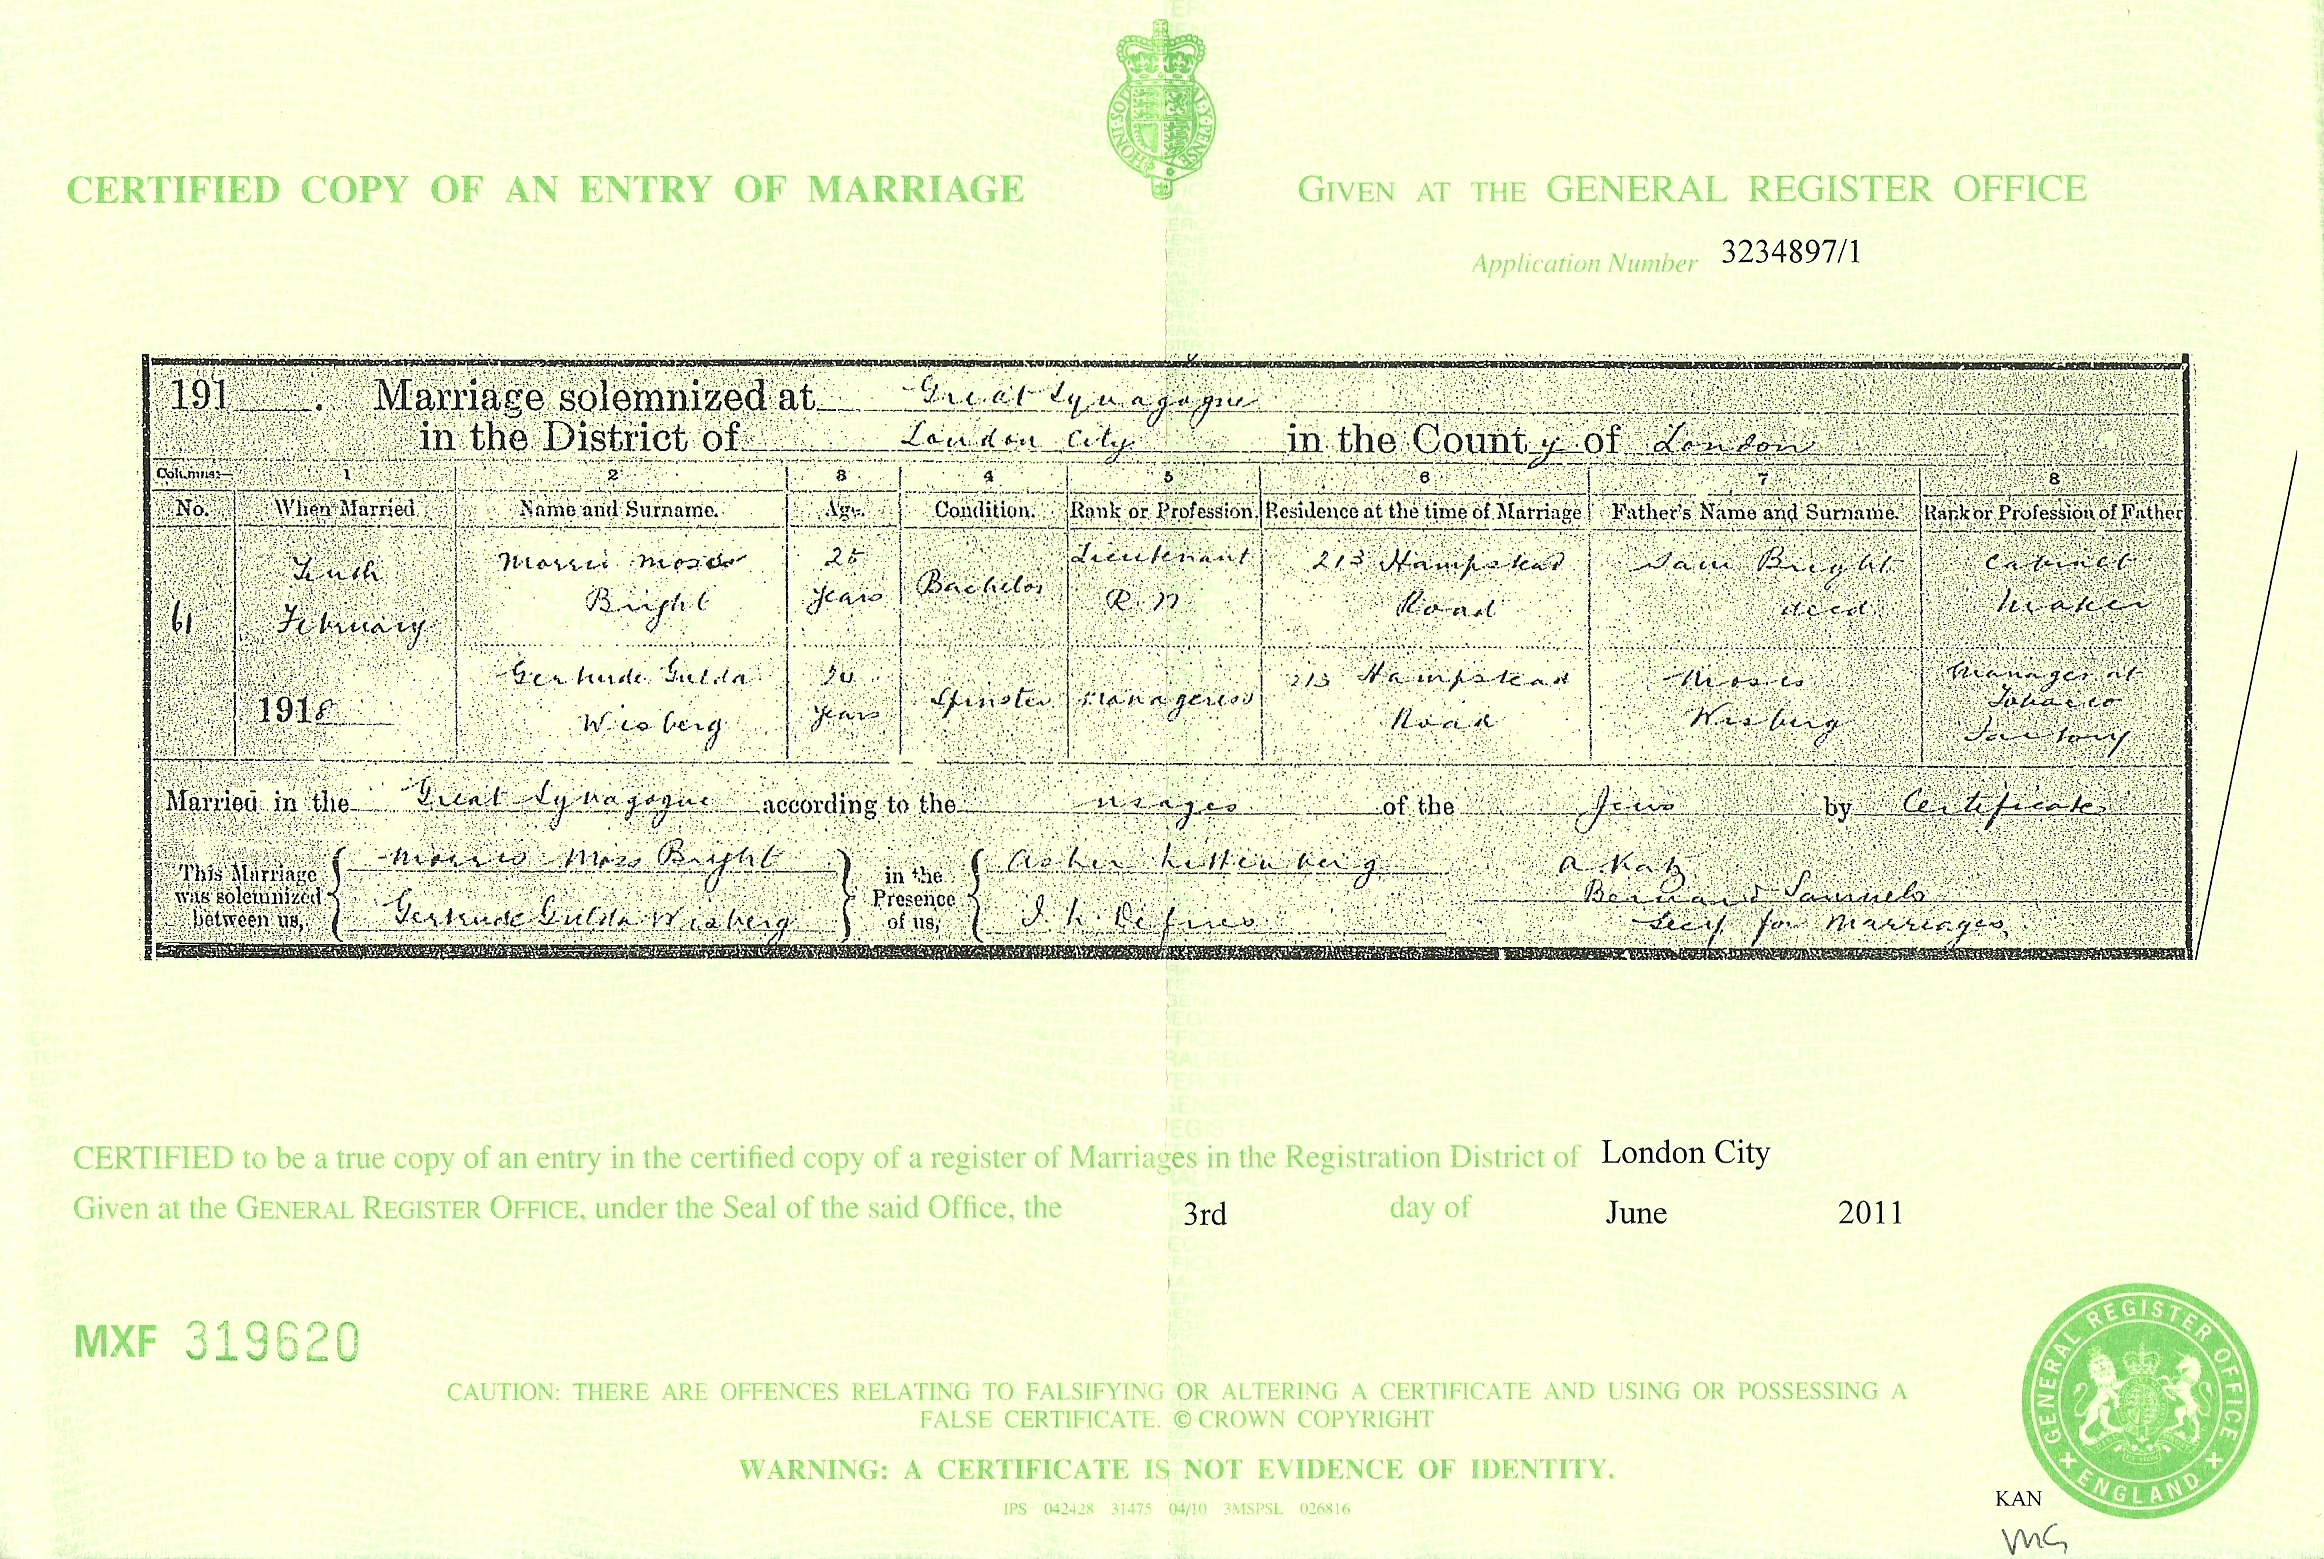 HONI·SOI AL·Y·PENSE
CERTIFIED COPY OF AN ENTRY OF MARRIAGE
GIVEN AT THE GENERAL REGISTER OFFICE
Application Number 3234897/1
191 . Marriage solemnized at Great Synagogue
in the District of London City in the County of London
Columns:— 1 2 3 4 5 6 7 8
No. When Married. Name and Surname. Age. Condition. Rank or Profession. Residence at the time of Marriage Father's Name and Surname. Rank or Profession of Father
61 Tenth February 1918
Morris Moss Bright 25 years Bachelor Lieutenant R.N 213 Hampstead Road Sam Bright decd Cabinet Maker
Gertrude Gulda Wisberg years Spinster Manageress 213 Hampstead Road Moses Wisberg Manager at Tobacco Factory
Married in the Great Synagogue according to the usages of the Jews by Certificate
This Marriage was solemnized between us, Morris Moss Bright
Gertrude Gulda Wisberg
in the Presence of us, Asher
A Katz
Bernard Samuels
Secy for Marriages
CERTIFIED to be a true copy of an entry in the certified copy of a register of Marriages in the Registration District of London City
Given at the GENERAL REGISTER OFFICE, under the Seal of the said Office, the 3rd day of June 2011
MXF 319620
CAUTION: THERE ARE OFFENCES RELATING TO FALSIFYING OR ALTERING A CERTIFICATE AND USING OR POSSESSING A
FALSE CERTIFICATE. © CROWN COPYRIGHT
WARNING: A CERTIFICATE IS NOT EVIDENCE OF IDENTITY.
IPS 042428 31475 04/10 3MSPSL 026816
GENERAL REGISTER OFFICE
ENGLAND
KAN
MG